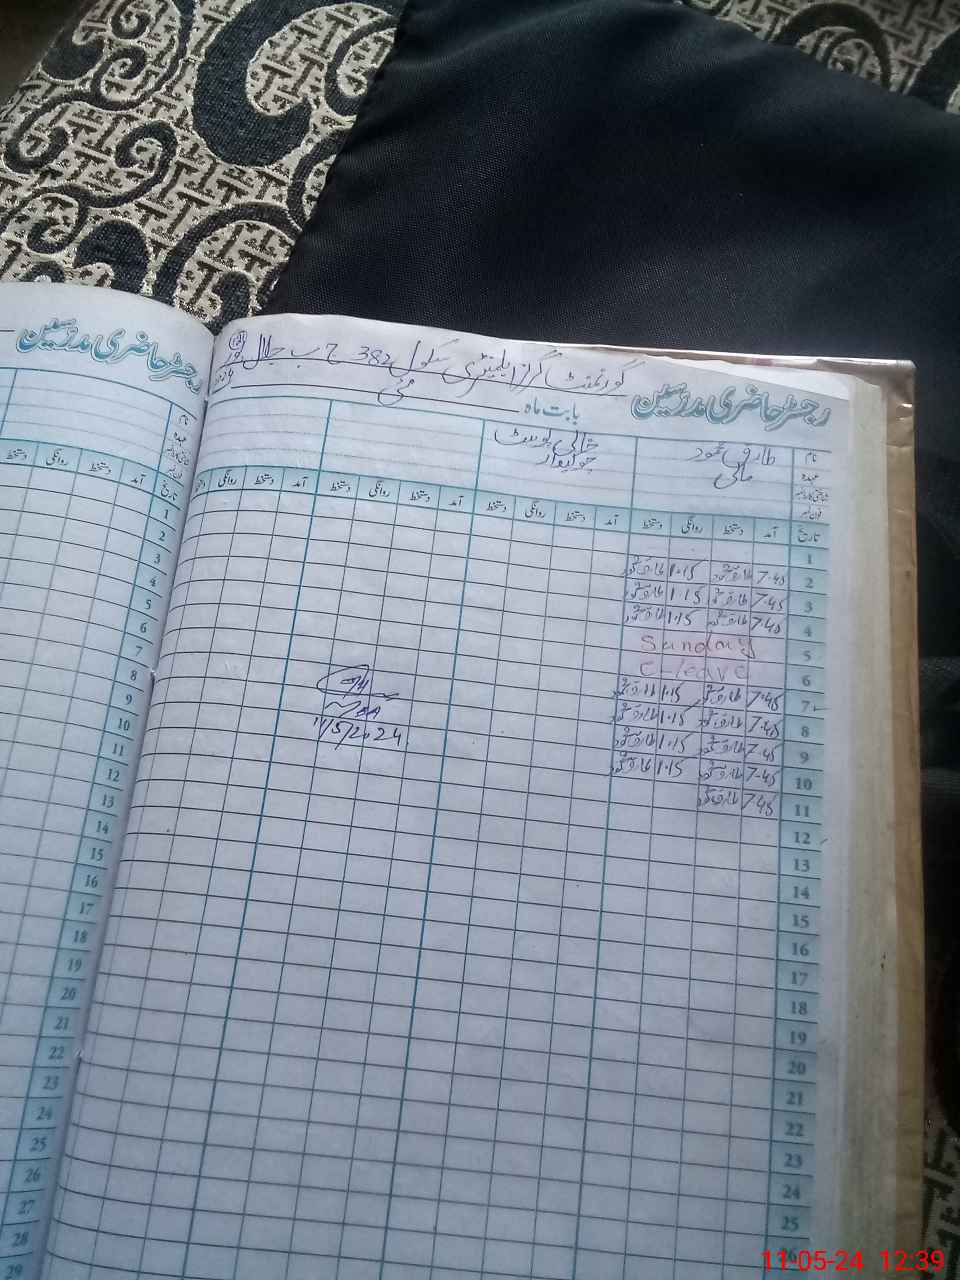 گورنمنٹ گرلز ایلیمنٹری سکول 382 ج ب جلال
رجسٹر حاضری مدرسین
بابت ماہ مئی
نام طارق محمود خالی پوسٹ
عہدہ مالی چوکیدار
شناختی کارڈ نمبر
فون نمبر
تاریخ آمد دستخط روانگی دستخط آمد دستخط روانگی دستخط آمد دستخط روانگی دستخط آمد دستخط روانگی
1
2 7.45 طارق محمود 1.15 طارق محمود
3 7.45 طارق محمود 1.15 طارق محمود
4 7.45 طارق محمود 1.15 طارق محمود
5 Sunday
6 C-leave
7 7.45 طارق محمود 1.15 طارق محمود
8 7.45 طارق محمود 1.15 طارق محمود
9 7.45 طارق محمود 1.15 طارق محمود
10 7.45 طارق محمود 1.15 طارق محمود
11 7.45 طارق محمود
11/5/2024
12
13
14
15
16
17
18
19
20
21
22
23
24
25
رجسٹر حاضری مدرسین
نام
عہدہ
شناختی کارڈ نمبر
فون نمبر
تاریخ آمد دستخط روانگی دستخط
1
2
3
4
5
6
7
8
9
10
11
12
13
14
15
16
17
18
19
20
21
22
23
24
25
26
27
28
29
11-05-24 12:39